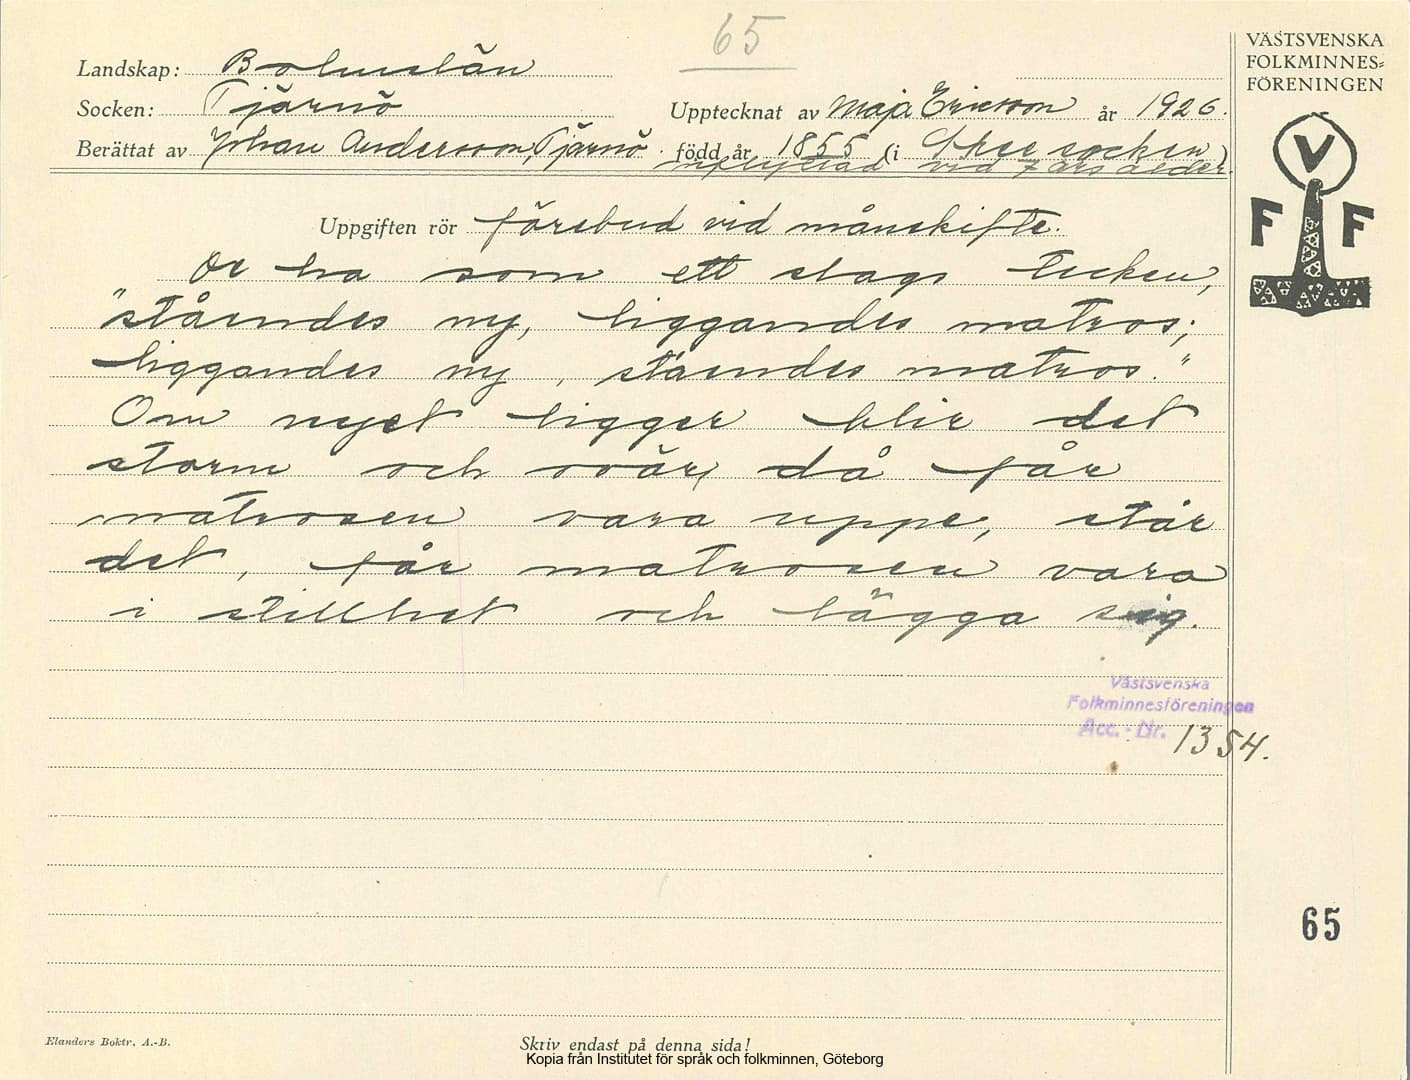 65
VÄSTSVENSKA
FOLKMINNES=
FÖRENINGEN
Landskap: Bohuslän
Socken: Tjärnö
Upptecknat av Maja Ericson år 1926.
Berättat av Johan Andersson, Tjärnö. född år 1855 (i Skee socken)
inflyttad vid 7 års ålder.
V
F F
Uppgiften rör förebud vid månskifte.
De ha som ett slags tecken,
"ståendes ny, liggandes matros;
liggandes ny, ståendes matros."
Om nyet ligger blir det
storm och svår, då får
matrosen vara uppe, står
det, får matrosen vara
i stillhet och lägga sig.
Västsvenska
Folkminnesföreningen
Acc. - Nr. 1354.
65
Elanders Boktr. A.-B.
Skriv endast på denna sida!
Kopia från Institutet för språk och folkminnen, Göteborg